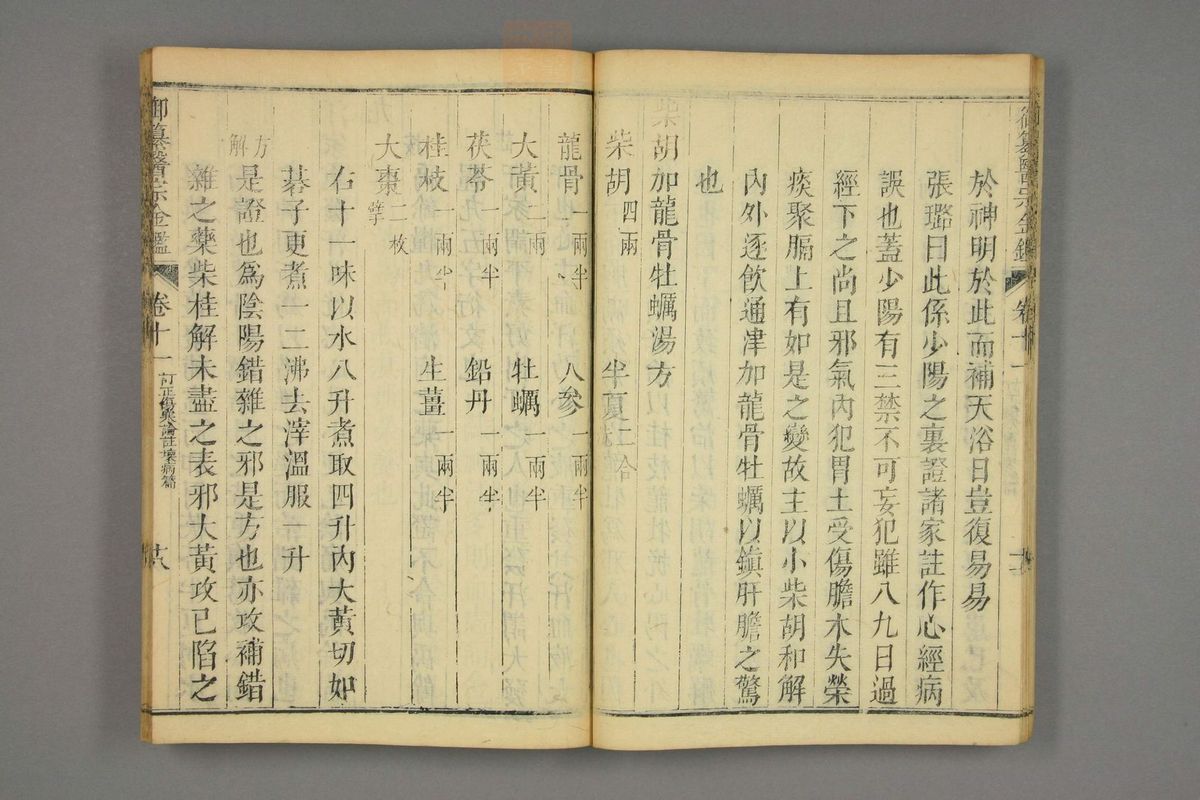 御纂醫宗金鑑 卷十一
於神明於此而補天浴日豈復易易
張璐曰此係少陽之裏證諸家註作心經病
誤也蓋少陽有三禁不可妄犯雖八九日過
經下之尚且邪氣內犯胃土受傷膽木失榮
痰聚膈上有如是之變故主以小柴胡和解
內外逐飲通津加龍骨牡蠣以鎮肝膽之驚
也
柴胡加龍骨牡蠣湯方
柴胡四兩 半夏二合
龍骨一兩半 人參一兩半
大黃二兩 牡蠣一兩半
茯苓一兩半 鉛丹一兩半
桂枝一兩半 生薑一兩半
大棗二枚擘
右十一味以水八升煮取四升內大黃切如
碁子更煮一二沸去滓溫服一升
方解
是證也為陰陽錯雜之邪是方也亦攻補錯
雜之藥柴桂解未盡之表邪大黃攻已陷之
御纂醫宗金鑑 卷十一 訂正傷寒論註壞病篇 廿八